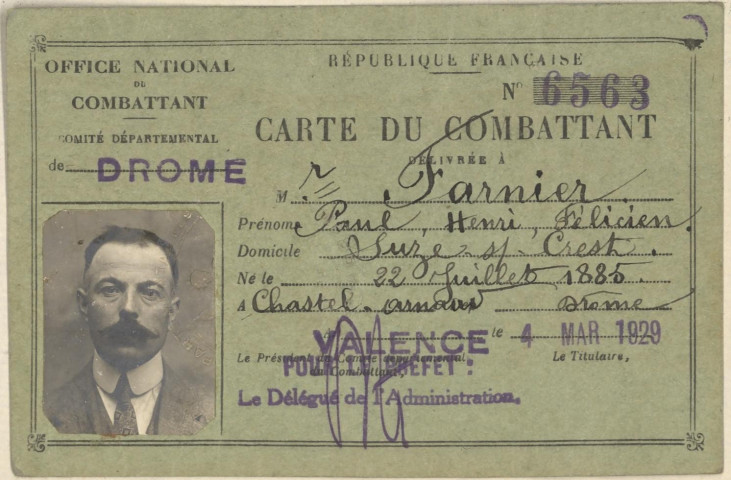 OFFICE NATIONAL
DU
COMBATTANT
COMITÉ DÉPARTEMENTAL
de DROME
RÉPUBLIQUE FRANÇAISE
N° 6563
CARTE DU COMBATTANT
DÉLIVRÉE À
M. r Farnier
Prénoms Paul, Henri, Félicien.
Domicile Suze s/ Crest.
Né le 22 Juillet 1885.
A Chastel-Arnaud Drome
A VALENCE le 4 MAR 1929
Le Président du Comité départemental
du Combattant,
Le Titulaire,
POUR LE PREFET :
Le Délégué de l'Administration.